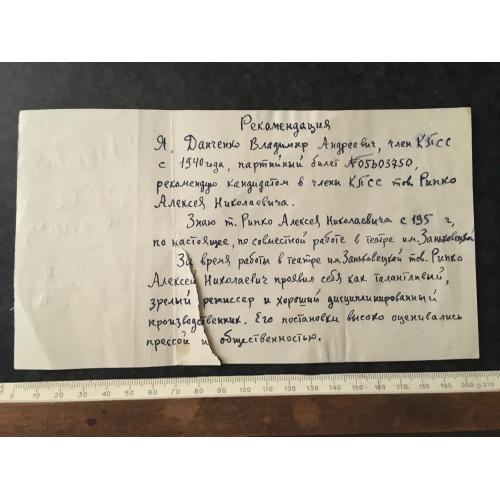 Рекомендация
Я, Данченко Владимир Андреевич, член КПСС
с 1940 года, партийный билет №05603750,
рекомендую кандидатом в члены КПСС тов. Рипко
Алексея Николаевича.
Знаю т. Рипко Алексея Николаевича с 195 г,
по настоящее, по совместной работе в театре им. Заньковецкой
За время работы в театре им. Заньковецкой тов. Рипко
Алексей Николаевич проявил себя как талантливый,
зрелый режиссер и хороший дисциплинированный
производственник. Его постановки высоко оценивались
прессой и общественностью.
0 10 20 30 40 50 60 70 80 90 100 110 120 130 140 150 160 170 180 190 200 210